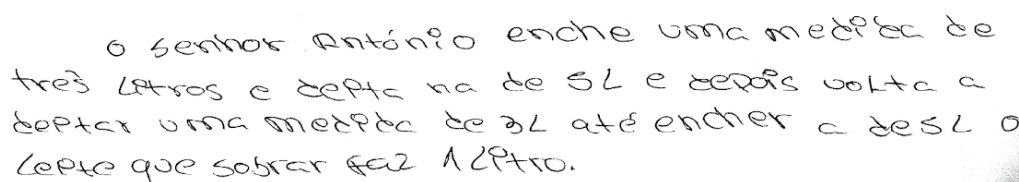 o senhor António enche uma medida de
tres litros e deita na de 5L e depois volta a
deitar uma medida de 3L até encher a de 5L o
leite que sobrar faz 1 litro.